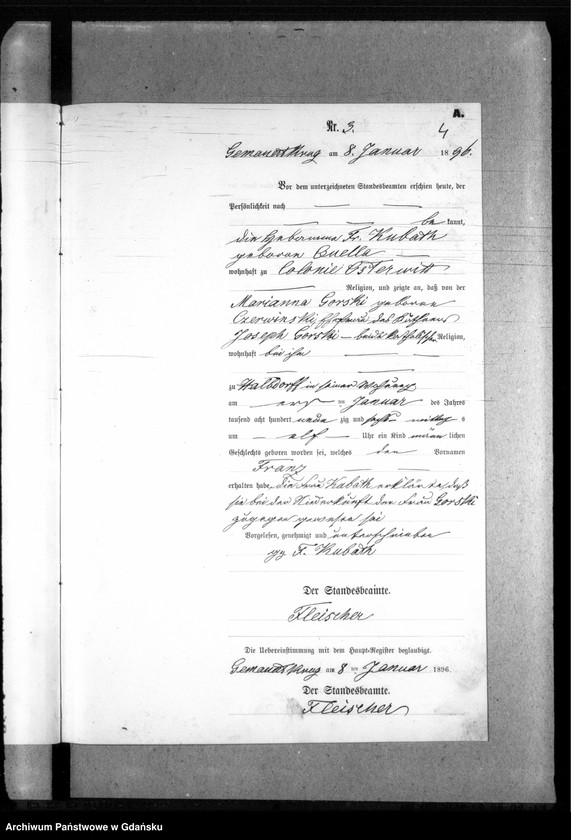 A.
Nr. 3.
4
am 8. Januar 1896.
Vor dem unterzeichneten Standesbeamten erschien heute, der
Persönlichkeit nach
be kannt,
die Hebamme Fr. Kubath
geborene
wohnhaft zu Colonie Osterwitt
Religion, und zeigte an, daß von der
Marianna Gorski geborene
Czerwinski, Ehefrau des
Joseph Gorski – beide katholischer Religion,
wohnhaft bei ihm
zu Halbdorff in seiner Wohnung
am ersten Januar des Jahres
tausend acht hundert neun zig und sechs mittags
um elf Uhr ein Kind männ lichen
Geschlechts geboren worden sei, welches den Vornamen
Franz
erhalten habe. Die Frau Kubath erklärte, daß
sie bei der Niederkunft der Frau Gorski
zugegen gewesen sei
Vorgelesen, genehmigt und unterschrieben
gez F. Kubath
Der Standesbeamte.
Fleischer
Die Uebereinstimmung mit dem Haupt-Register beglaubigt.
am 8 ten Januar 1896.
Der Standesbeamte.
Fleischer
Archiwum Państwowe w Gdańsku